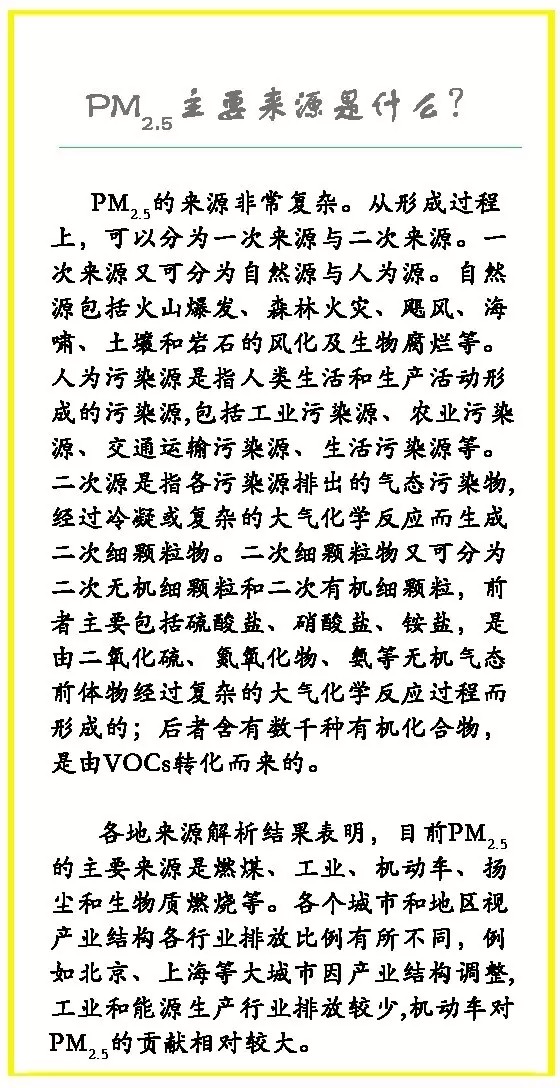 PM2.5主要来源是什么?
PM2.5的来源非常复杂。从形成过程
上，可以分为一次来源与二次来源。一
次来源又可分为自然源与人为源。自然
源包括火山爆发、森林火灾、飓风、海
啸、土壤和岩石的风化及生物腐烂等。
人为污染源是指人类生活和生产活动形
成的污染源,包括工业污染源、农业污染
源、交通运输污染源、生活污染源等。
二次源是指各污染源排出的气态污染物,
经过冷凝或复杂的大气化学反应而生成
二次细颗粒物。二次细颗粒物又可分为
二次无机细颗粒和二次有机细颗粒，前
者主要包括硫酸盐、硝酸盐、铵盐，是
由二氧化硫、氮氧化物、氨等无机气态
前体物经过复杂的大气化学反应过程而
形成的；后者含有数千种有机化合物，
是由VOCs转化而来的。
各地来源解析结果表明，目前PM2.5
的主要来源是燃煤、工业、机动车、扬
尘和生物质燃烧等。各个城市和地区视
产业结构各行业排放比例有所不同，例
如北京、上海等大城市因产业结构调整,
工业和能源生产行业排放较少,机动车对
PM2.5的贡献相对较大。